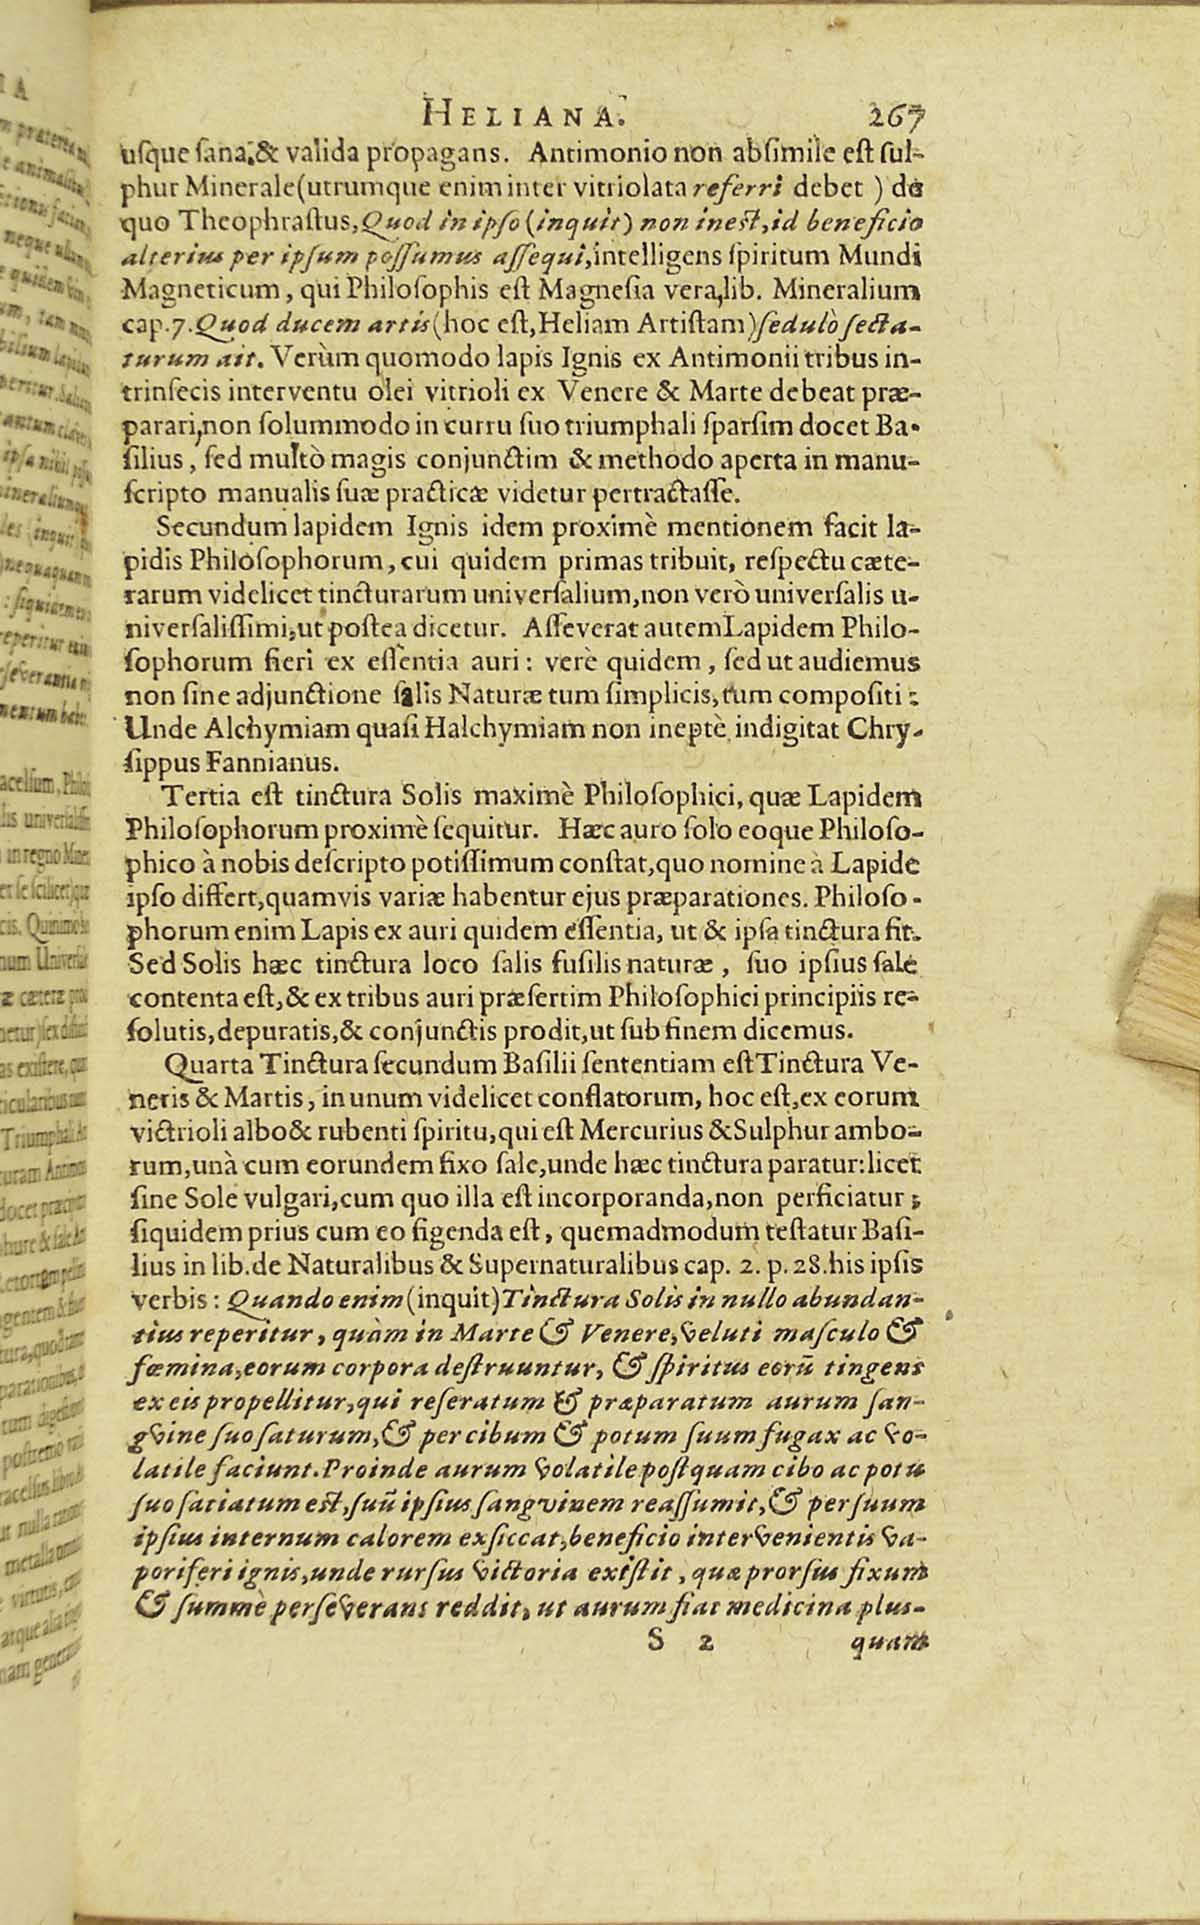 HELIANA. 267
usque sana, & valida propagans. Antimonio non absimile est sul-
phur Minerale (utrumque enim inter vitriolata referri debet) de
quo Theophrastus, Quod in ipso (inquit) non inest, id beneficio
alterius per ipsum possumus assequi, intelligens spiritum Mundi
Magneticum, qui Philosophis est Magnesia vera, lib. Mineralium
cap. 7. Quod ducem artis (hoc est, Heliam Artistam) sedulò secta-
turum ait. Verùm quomodo lapis Ignis ex Antimonii tribus in-
trinsecis interventu olei vitrioli ex Venere & Marte debeat præ-
parari, non solummodo in curru suo triumphali sparsim docet Ba-
silius, sed multò magis conjunctim & methodo aperta in manu-
scripto manualis suæ practicæ videtur pertractasse.
Secundum lapidem Ignis idem proximè mentionem facit la-
pidis Philosophorum, cui quidem primas tribuit, respectu cæte-
rarum videlicet tincturarum universalium, non verò universalis u-
niversalissimi, ut postea dicetur. Asseverat autem Lapidem Philo-
sophorum fieri ex essentia auri: verè quidem, sed ut audiemus
non sine adjunctione salis Naturæ tum simplicis, tum compositi:
Unde Alchymiam quasi Halchymiam non ineptè indigitat Chry-
sippus Fannianus.
Tertia est tinctura Solis maximè Philosophici, quæ Lapidem
Philosophorum proximè sequitur. Hæc auro solo eoque Philoso-
phico à nobis descripto potissimum constat, quo nomine à Lapide
ipso differt, quamvis variæ habentur ejus præparationes. Philoso-
phorum enim Lapis ex auri quidem essentia, ut & ipsa tinctura fit.
Sed Solis hæc tinctura loco salis fusilis naturæ, suo ipsius sale
contenta est, & ex tribus auri præsertim Philosophici principiis re-
solutis, depuratis, & conjunctis prodit, ut sub finem dicemus.
Quarta Tinctura secundum Basilii sententiam est Tinctura Ve-
neris & Martis, in unum videlicet conflatorum, hoc est, ex eorum
victrioli albo & rubenti spiritu, qui est Mercurius & Sulphur ambo-
rum, unà cum eorundem fixo sale, unde hæc tinctura paratur: licet
sine Sole vulgari, cum quo illa est incorporanda, non perficiatur;
siquidem prius cum eo figenda est, quemadmodum testatur Basi-
lius in lib. de Naturalibus & Supernaturalibus cap. 2. p. 28. his ipsis
verbis: Quando enim (inquit) Tinctura Solis in nullo abundan-
tius reperitur, quàm in Marte & Venere, veluti masculo &
fœmina, eorum corpora destruuntur, & spiritus eorū tingens
ex eis propellitur, qui reseratum & præparatum aurum san-
gvine suo saturum, & per cibum & potum suum fugax ac vo-
latile faciunt. Proinde aurum volatile postquam cibo ac potu
suo satiatum est, suū ipsius sangvinem reassumit, & per suum
ipsius internum calorem exsiccat, beneficio intervenientis va-
poriferi ignis, unde rursus victoria existit, quæ prorsus fixum
& summè perseverans reddit, ut aurum fiat medicina plus-
S 2 quam